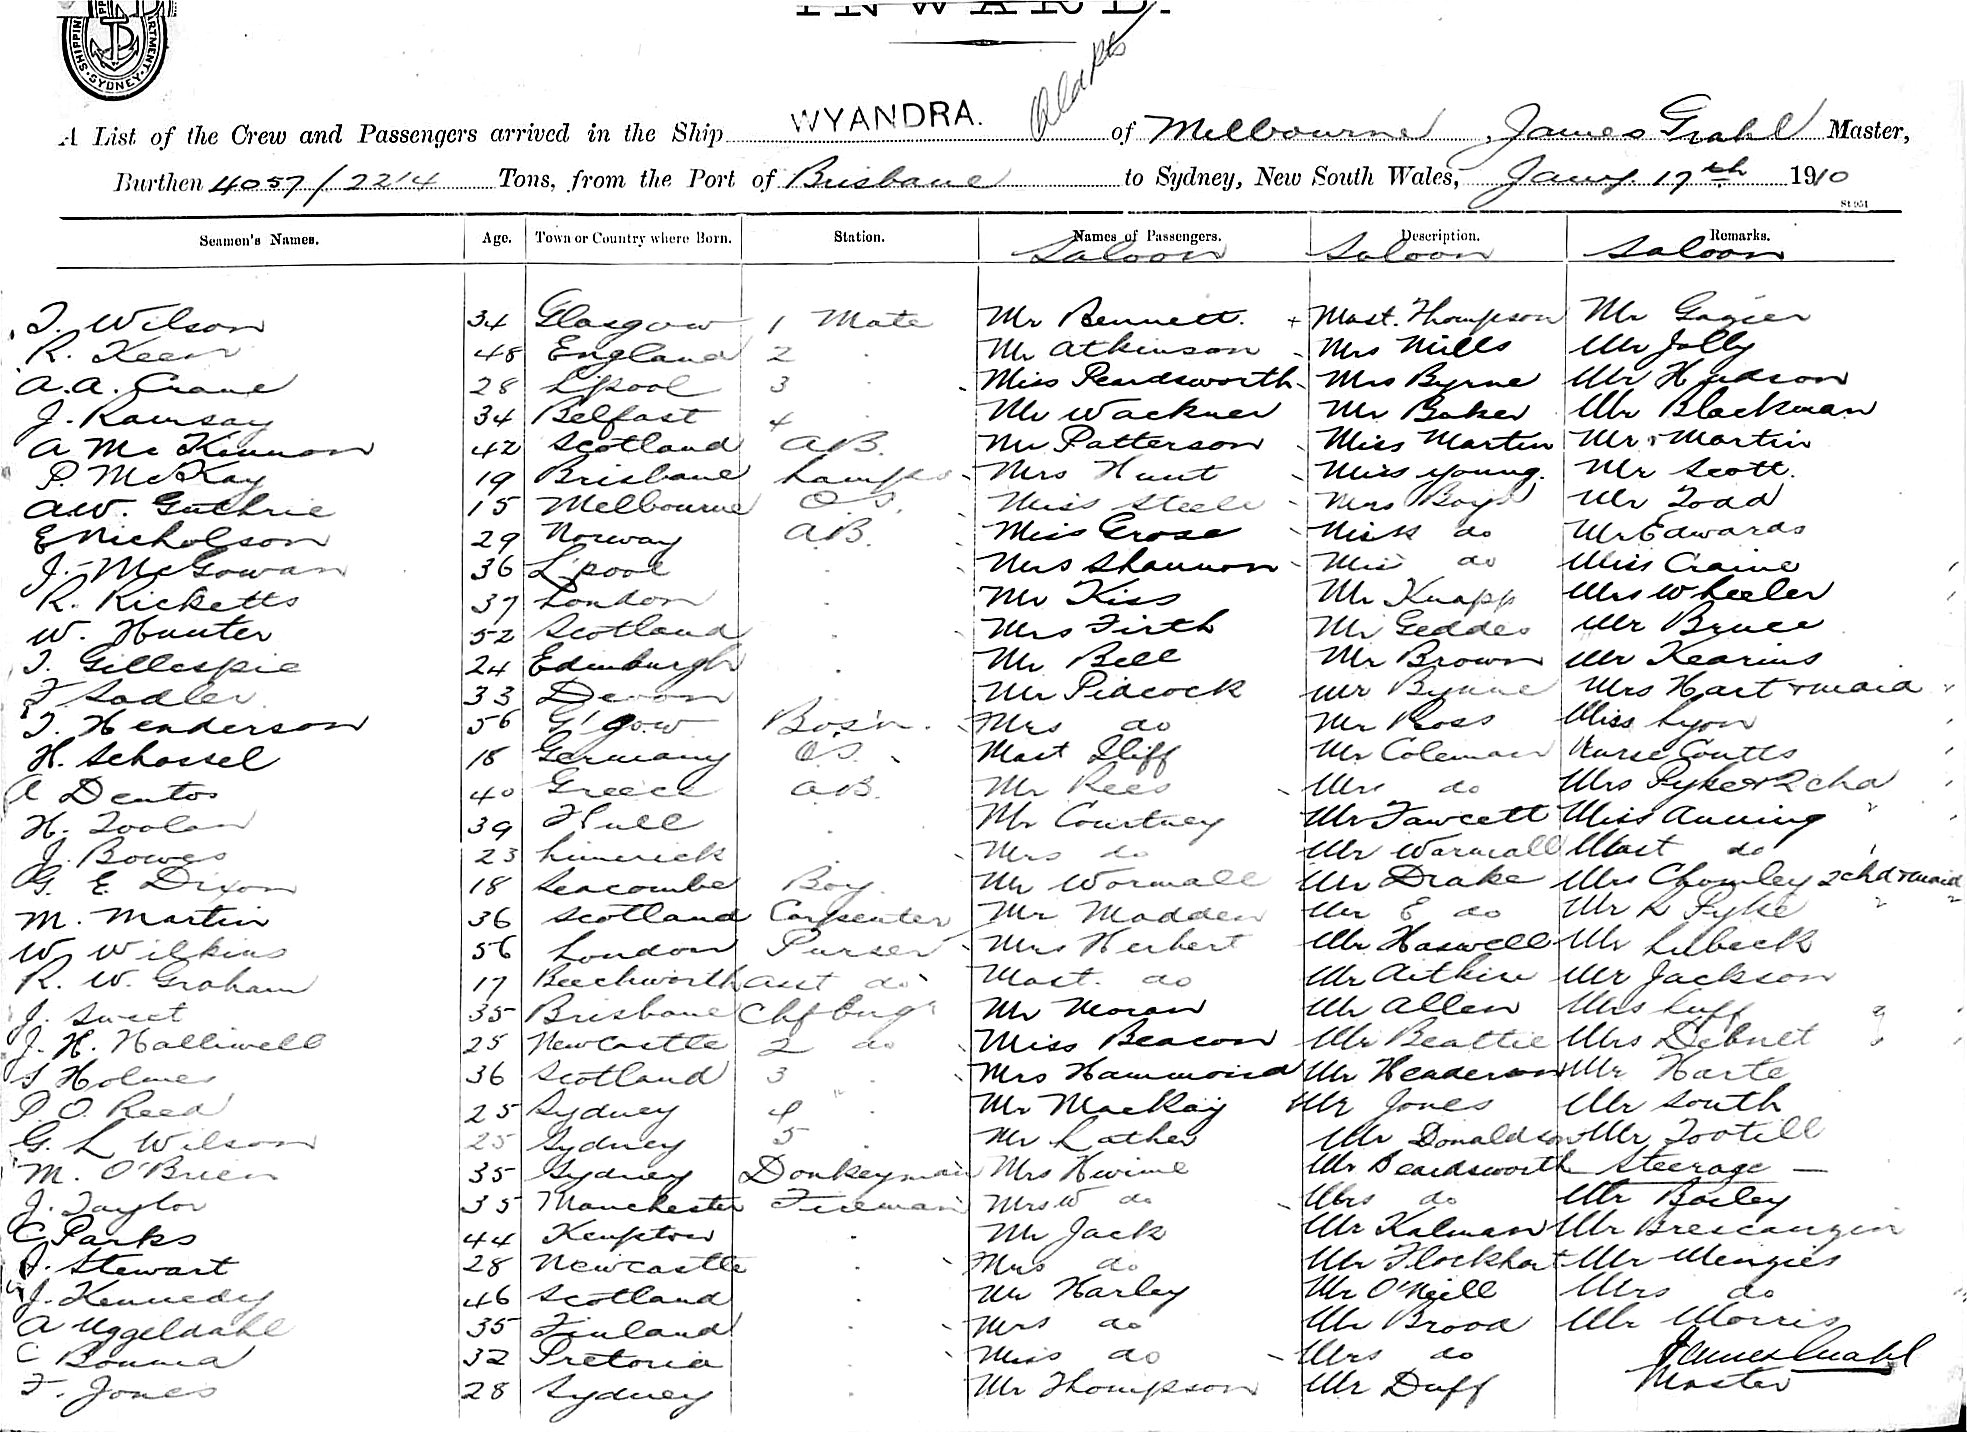 INWARD.
SHIPPING DEPARTMENT SYDNEY
Old Pts
A List of the Crew and Passengers arrived in the Ship WYANDRA. of Melbourne, James Grahl Master,
Burthen 4057/2214 Tons, from the Port of Brisbane to Sydney, New South Wales, Jany. 17th 1910
Seamen's Names. Age. Town or Country where Born. Station. Names of Passengers. Description. Remarks.
Saloon Saloon Saloon
T. Wilson 34 Glasgow 1 Mate Mr Bennett. Mast. Thompson Mr
R. Keen 48 England 2 Mr Atkinson Mrs Mills Mr Jolly
A.A. Crane 28 L'pool 3 Miss Peardsworth Mrs Byrne Mr Hudson
J. Ramsay 34 Belfast 4 Mr Wackner Mr Baker Mr Blackman
A McKinnon 42 Scotland A.B. Mr Patterson Miss Martin Mr Martin
P. McKay 19 Brisbane Lamps Mrs Hunt Miss Young. Mr Scott.
A.W. Guthrie 15 Melbourne O.S. Miss Steele Mrs Boys Mr Todd
E Nicholson 29 Norway A.B. Miss Grose Miss do Mr Edwards
J. McGowan 36 L'pool Mrs Shannon Miss do Miss Craine
R. Ricketts 37 London Mr Kiss Mr Knapp Mrs Wheeler
W. Hunter 52 Scotland Mrs Firth Mr Geddes Mr Bruce
T. Gillespie 24 Edinburgh Mr Bell Mr Brown Mr Kearins
F Sadler 33 Devon Mr Pidcock Mr Byrne Mrs Hart & maid
T. Henderson 56 G'gow Bos'n. Mrs do Mr Ross Miss Lyon
H. Schossel 18 Germany O.S. Mast Iliff Mr Coleman Nurse Coutts
A Dentos 40 Greece A.B. Mr Rees Mrs do Mrs Pyke & 2 chd
H. Toolan 39 Hull Mr Courtney Mr Fawcett Miss Anning
J. Bowes 23 Limerick Mrs do Mr Wormall Mast do
G. E. Dixon 18 Seacombe Boy. Mr Wormall Mr Drake Mrs Chomley 2 chd & maid
M. Martin 36 Scotland Carpenter Mr Madden Mr E do Mr R Pyke
W Wilkins 56 London Purser Mrs Herbert Mr Haswell Mr Lubeck
R. W. Graham 17 Beechworth asst do Mast. do Mr Aitkin Mr Jackson
J. Sweet 35 Brisbane Chf Eng Mr Moran Mr Allen Mrs Luff
J. H. Halliwell 25 Newcastle 2 do Miss Beacon Mr Beattie Mrs Debnet
S Holmes 36 Scotland 3 Mrs Hammond Mr Henderson Mr Harte
P. O. Reed 25 Sydney 4 Mr MacKay Mr Jones Mr South
G. L Wilson 25 Sydney 5 Mr Lather Mr Donaldson Mr Tootell
M. O'Brien 35 Sydney Donkeyman Mrs Hwime Mr Beardsworth Steerage
J. Taylor 35 Manchester Fireman Mrs W do Mrs do Mr Bailey
C Parks 44 Kempton Mr Jack Mr Kalman Mr Brescanzin
J. Stewart 28 Newcastle Mrs do Mr Flockhart Mr Menzies
J. Kennedy 46 Scotland Mr Harley Mr O'Neill Mrs do
A Uggeldahl 35 Finland Mrs do Mr Brood Mr Morris
C Bouma 32 Pretoria Miss do Mrs do James Grahl
F. Jones 28 Sydney Mr Thompson Mr Duff Master